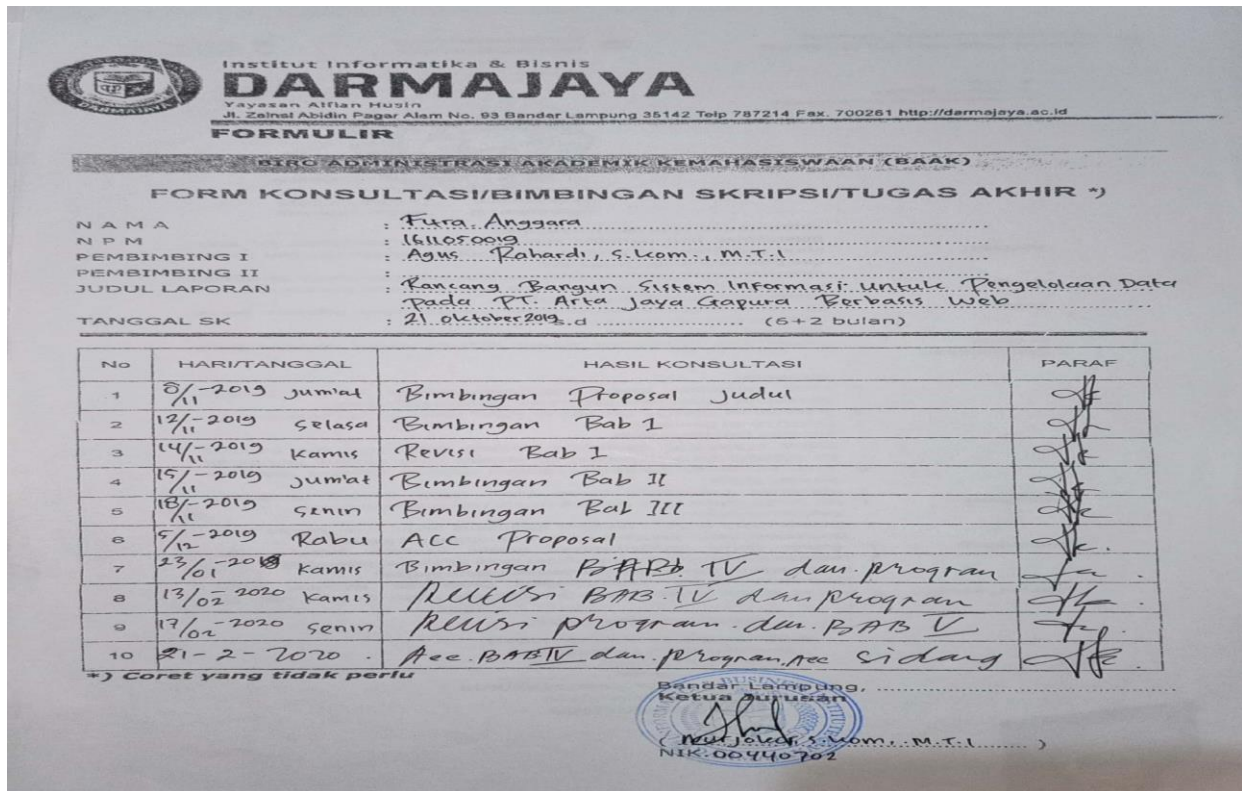 Institut Informatika & Bisnis
DARMAJAYA
Yayasan Alfian Husin
Jl. Zainal Abidin Pagar Alam No. 93 Bandar Lampung 35142 Telp 787214 Fax. 700261 http://darmajaya.ac.id
FORMULIR
BIRO ADMINISTRASI AKADEMIK KEMAHASISWAAN (BAAK)
FORM KONSULTASI/BIMBINGAN SKRIPSI/TUGAS AKHIR *)
NAMA : Fura Anggara
NPM : 1611050019
PEMBIMBING I : Agus Rahardi, S.Kom., M.T.I
PEMBIMBING II :
JUDUL LAPORAN : Rancang Bangun Sistem Informasi Untuk Pengelolaan Data
Pada PT. Arta Jaya Gapura Berbasis Web
TANGGAL SK : 21 oktober 2019 s.d .................... (6+2 bulan)
No HARI/TANGGAL HASIL KONSULTASI PARAF
1 8/11-2019 Jum'at Bimbingan Proposal Judul
2 12/11-2019 Selasa Bimbingan Bab 1
3 14/11-2019 Kamis Revisi Bab 1
4 15/11-2019 Jum'at Bimbingan Bab II
5 18/11-2019 Senin Bimbingan Bab III
6 5/12-2019 Rabu ACC Proposal
7 23/01 Kamis Bimbingan BAB IV dan program
8 13/02 2020 Kamis Revisi BAB IV dan program
9 17/02-2020 Senin Revisi program dan BAB V
10 21-2-2020 Acc BAB IV dan program, Acc sidang
*) Coret yang tidak perlu
Bandar Lampung, ....................
Ketua Jurusan
( Nurjoko, S.Kom., M.T.I )
NIK. 00440702